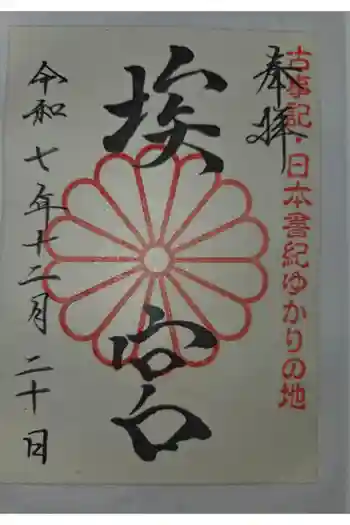 古事記・日本書紀ゆかりの地
奉拝
埃宮
令和七年十二月二十日